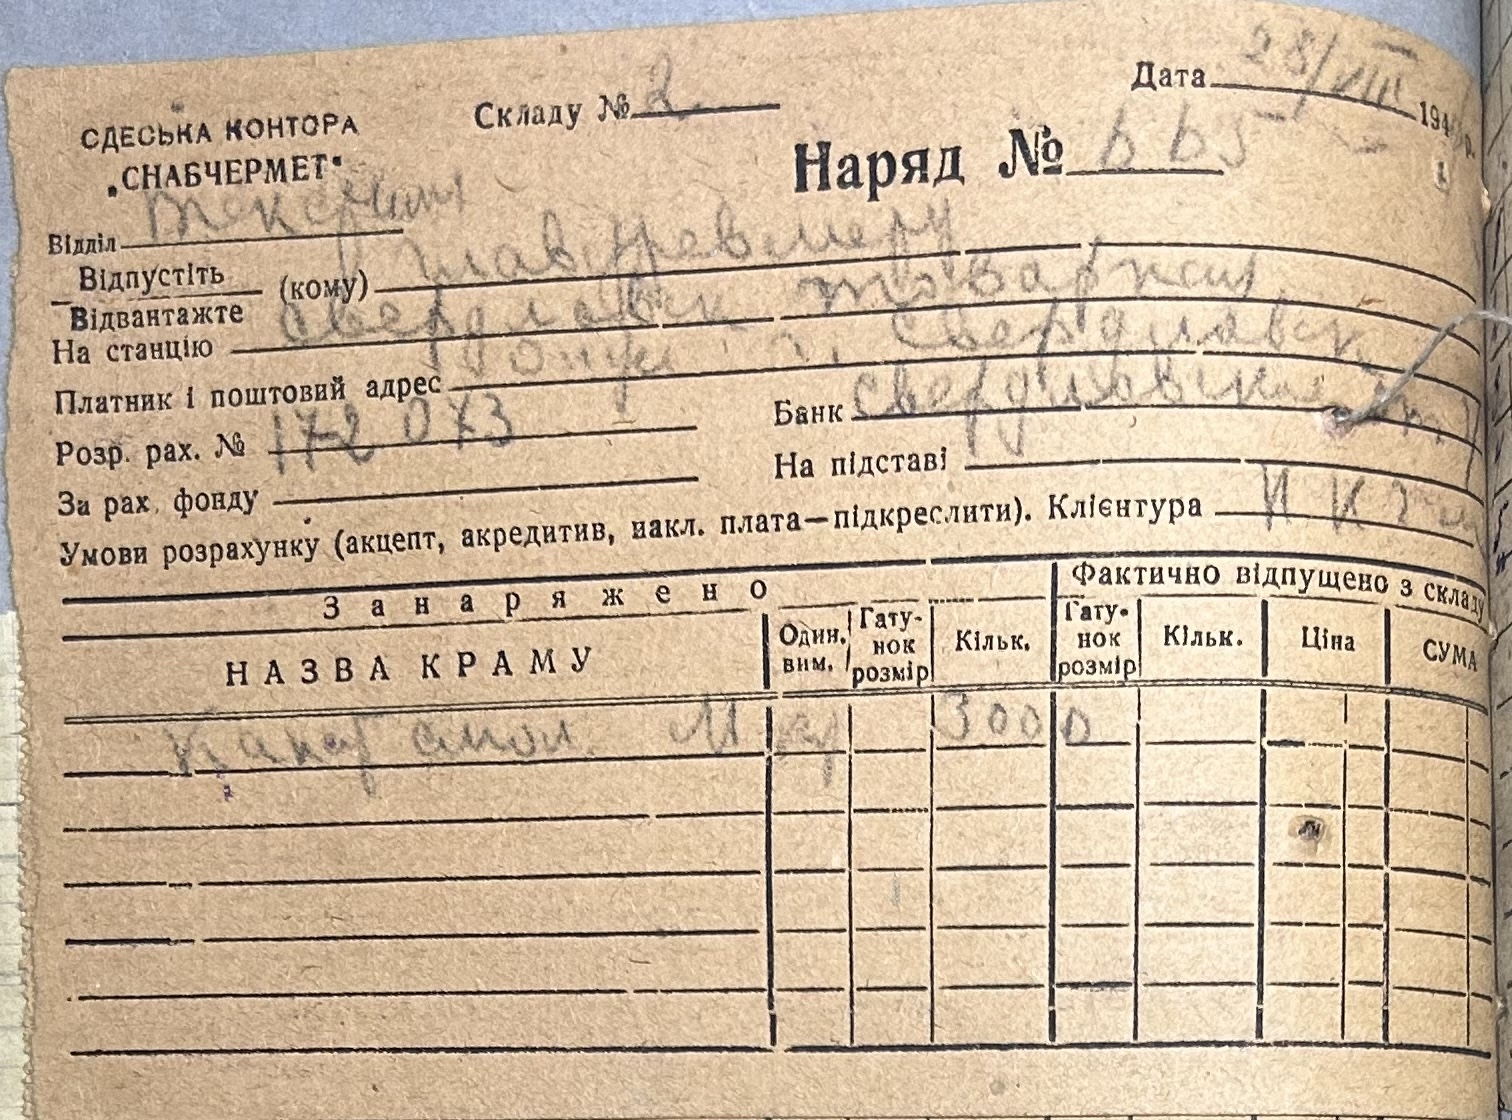 Складу № 2
Дата 28/VIII 194 р.
ОДЕСЬКА КОНТОРА
„СНАБЧЕРМЕТ"
Наряд №
Відділ
Відпустіть
Відвантажте
(кому)
На станцію Свердловск товарная
Платник і поштовий адрес Свердловск
Розр. рах. № 172 073
Банк
За рах. фонду
На підставі
Умови розрахунку (акцепт, акредитив, накл. плата—підкреслити). Клієнтура
Занаряжено
Фактично відпущено з складу
НАЗВА КРАМУ
Один. вим.
Гату-нок розмір
Кільк.
Гату-нок розмір
Кільк.
Ціна
СУМА
Канат смол. кг 3000